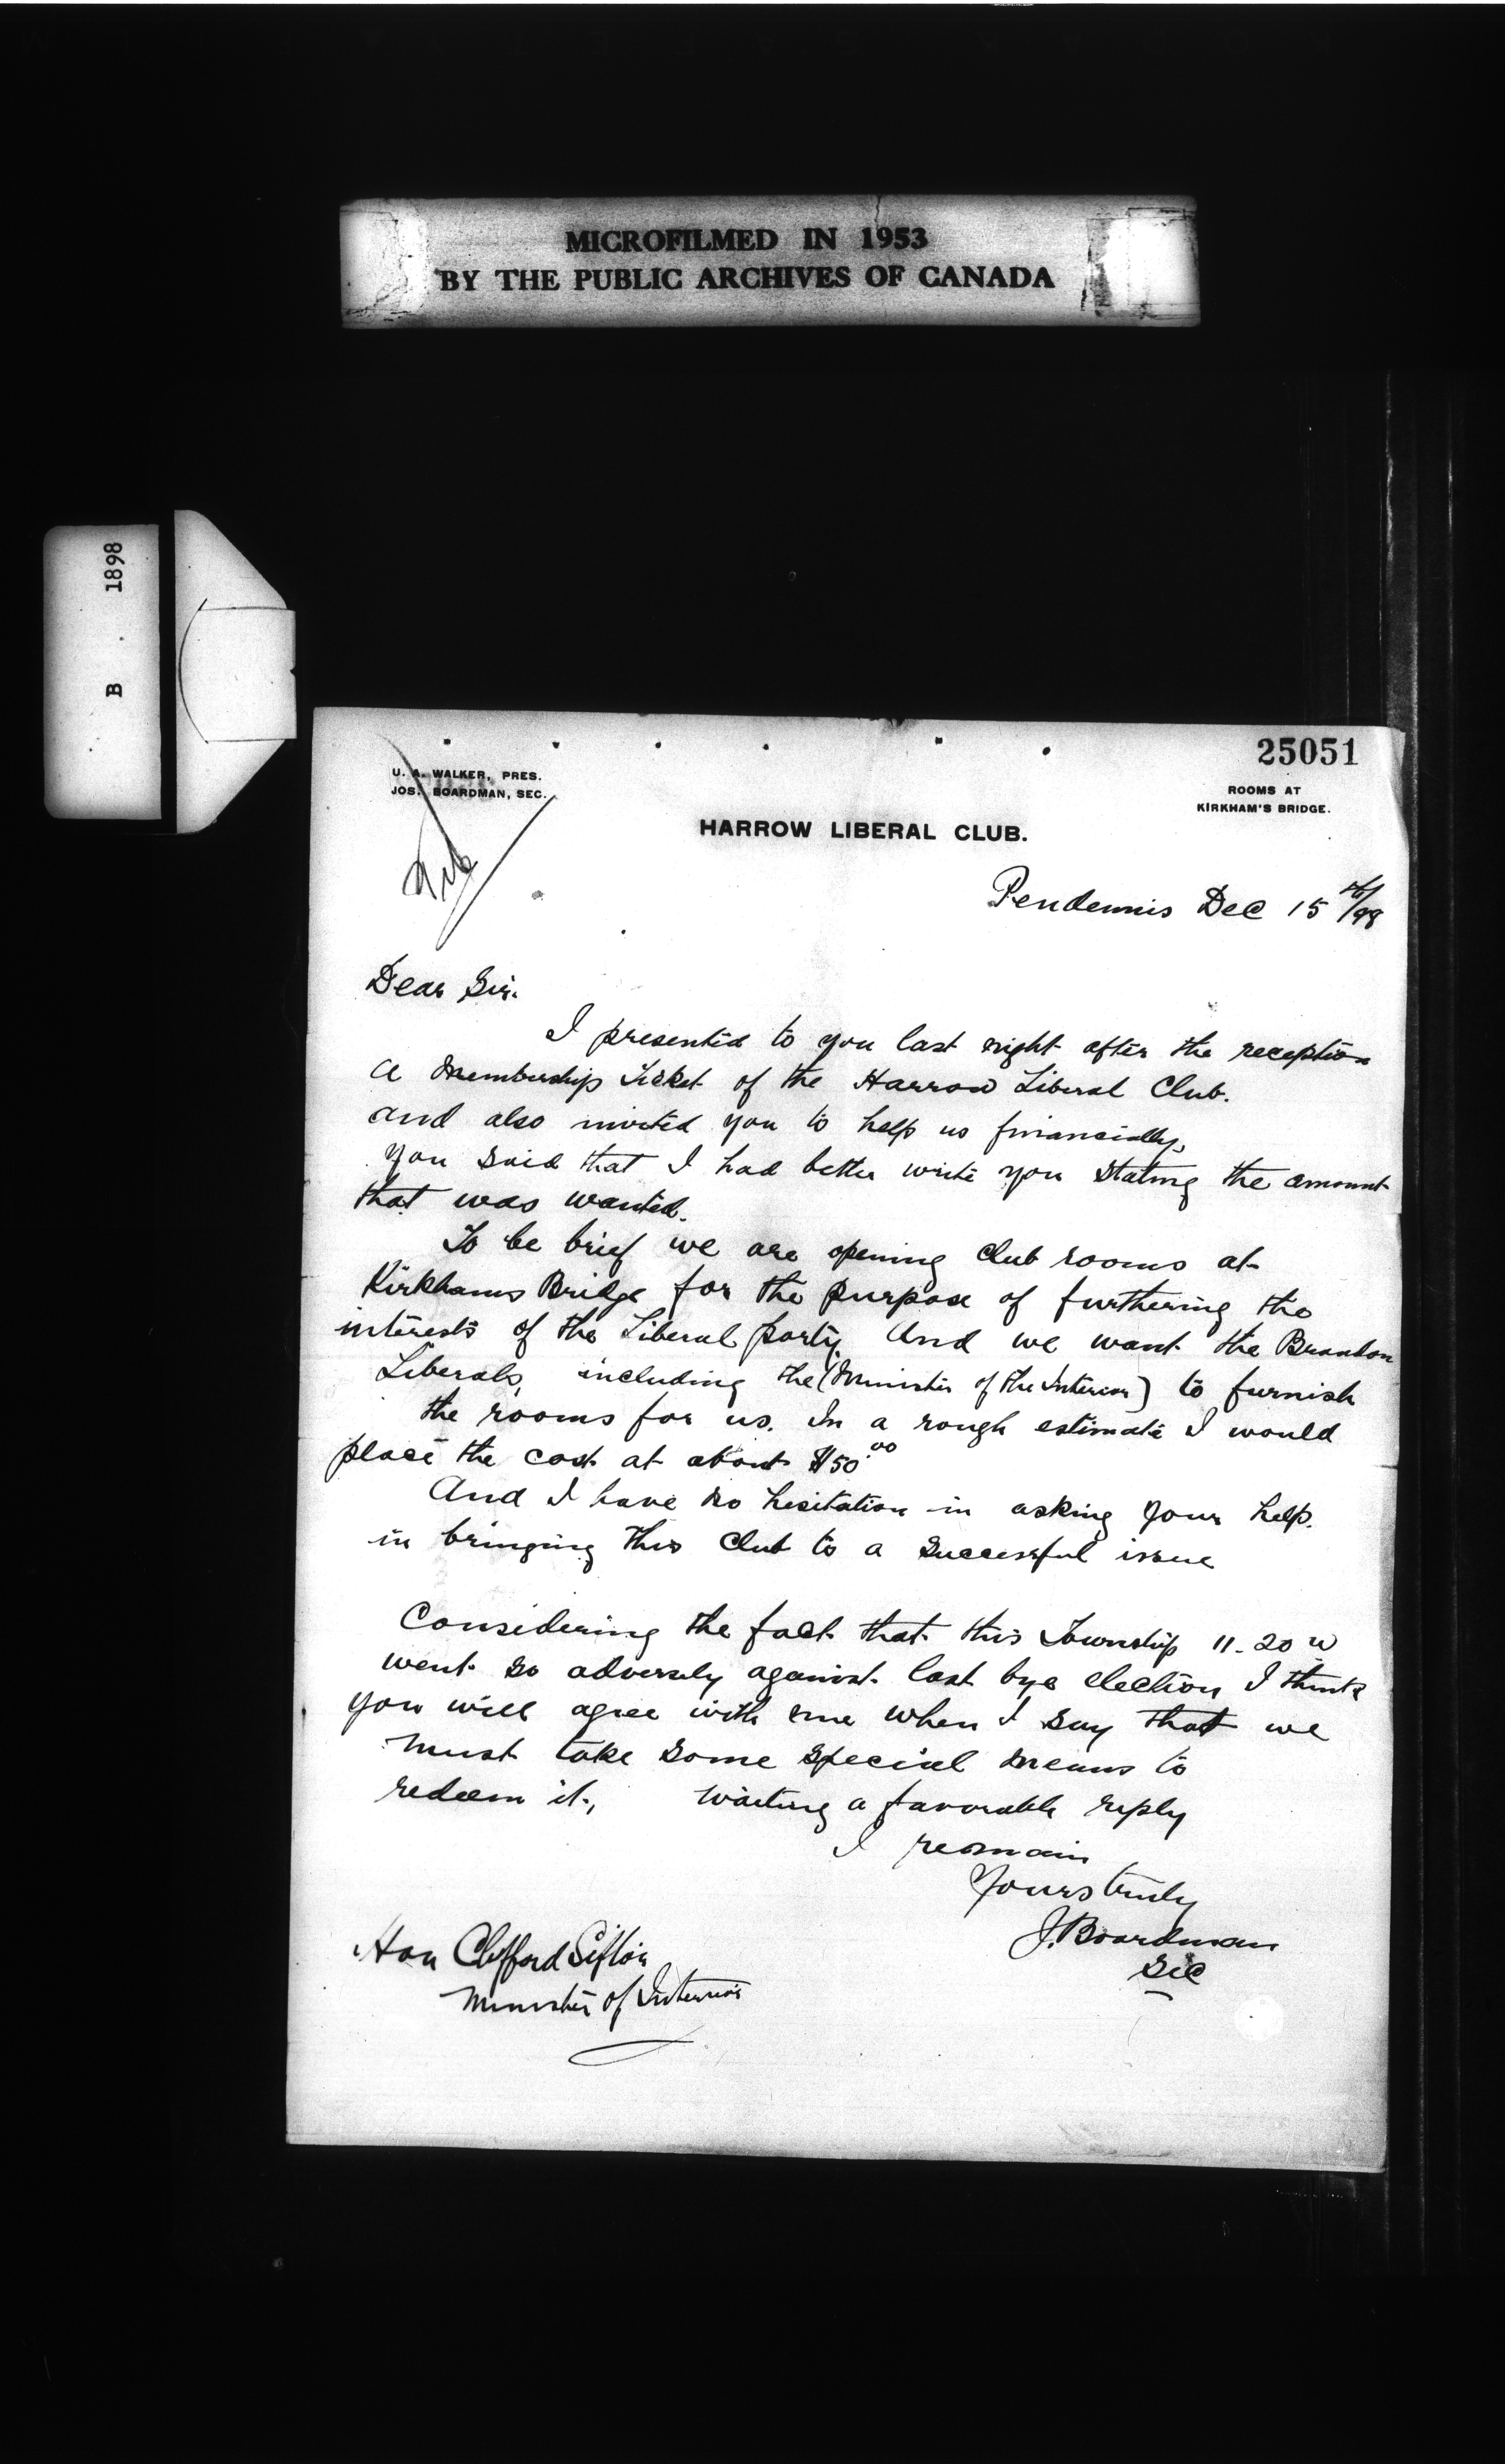 MICROFILMED IN 1953
BY THE PUBLIC ARCHIVES OF CANADA
B . 1898
25051
U. A. WALKER, PRES.
JOS. BOARDMAN, SEC.
ROOMS AT
KIRKHAM'S BRIDGE.
HARROW LIBERAL CLUB.
Pendennis Dec 15th/98
Dear Sir.
I presented to you last night after the reception
a Membership Ticket of the Harrow Liberal Club.
and also invited you to help us financially,
You said that I had better write you stating the amount
that was wanted.
To be brief we are opening Club rooms at
Kirkhams Bridge for the purpose of furthering the
interests of the Liberal party. And we want the Brandon
Liberals, including the (Minister of the Interior) to furnish
the rooms for us. In a rough estimate I would
place the cost at about $50.00
And I have no hesitation in asking your help.
in bringing this Club to a successful issue
Considering the fact that this Township 11-20 W
went so adversely against last bye election I think
you will agree with me when I say that we
must take some special means to
redeem it., Waiting a favorable reply
I remain
Yours truly
J. Boardman
Sec
Hon Clifford Sifton
Minister of Interior